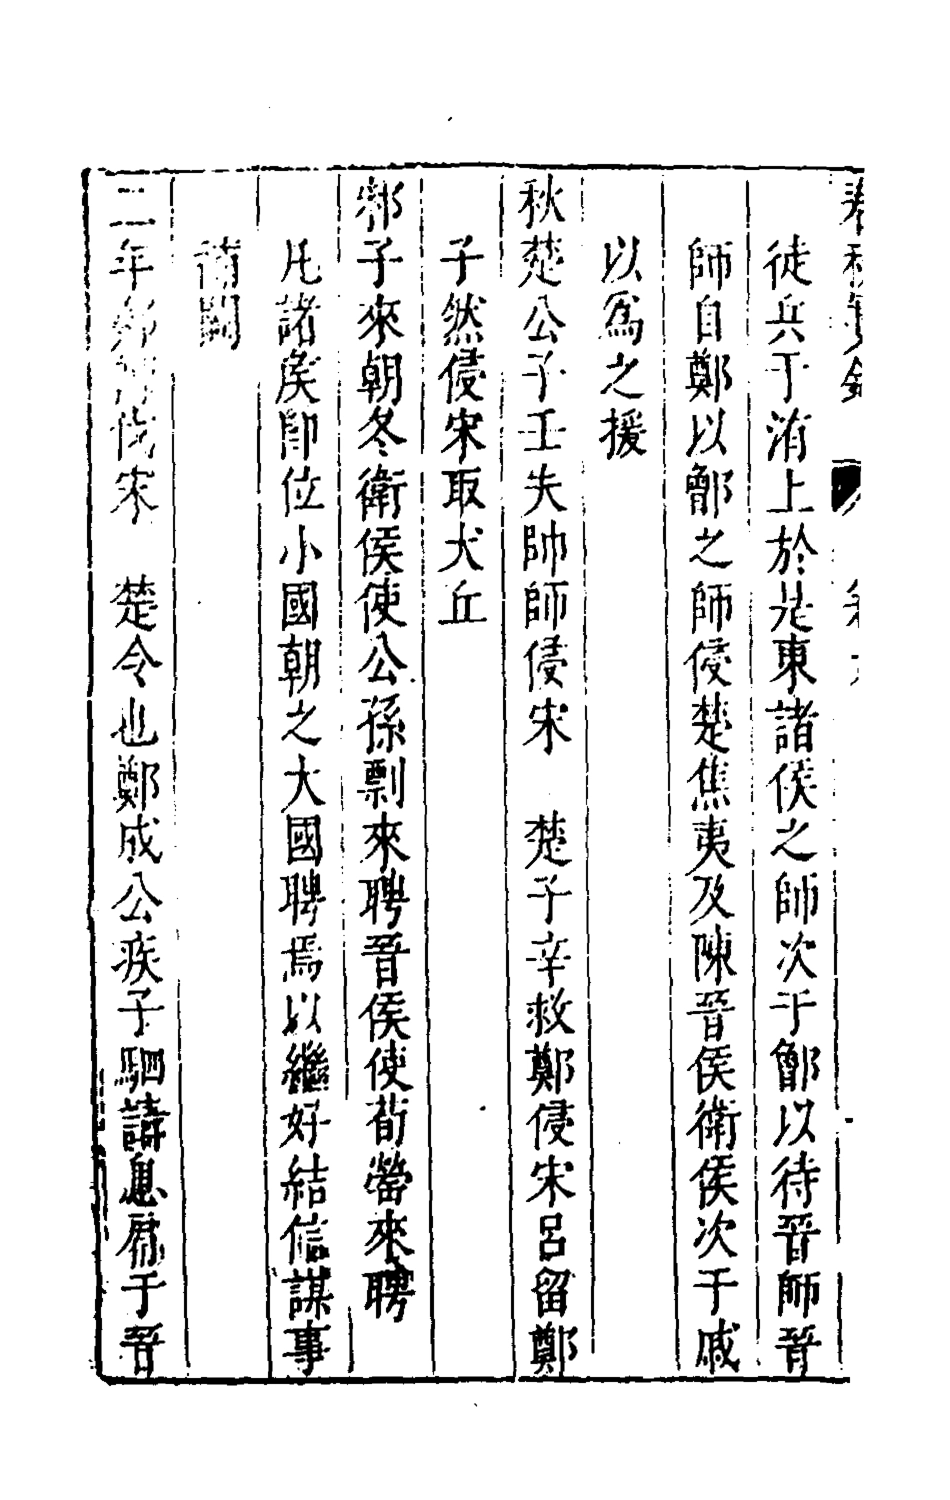 徒兵于洧上於是東諸侯之師次于鄫以待晉師晉
師自鄭以鄫之師侵楚焦夷及陳晉侯衛侯次于戚
以爲之援
秋楚公子壬夫帥師侵宋　楚子辛救鄭侵宋呂留鄭
子然侵宋取犬丘
邾子來朝冬衛侯使公孫剽來聘晉侯使荀罃來聘
凡諸侯卽位小國朝之大國聘焉以繼好結信謀事
補闕
二年鄭師伐宋　楚令也鄭成公疾子駟請息肩于晉